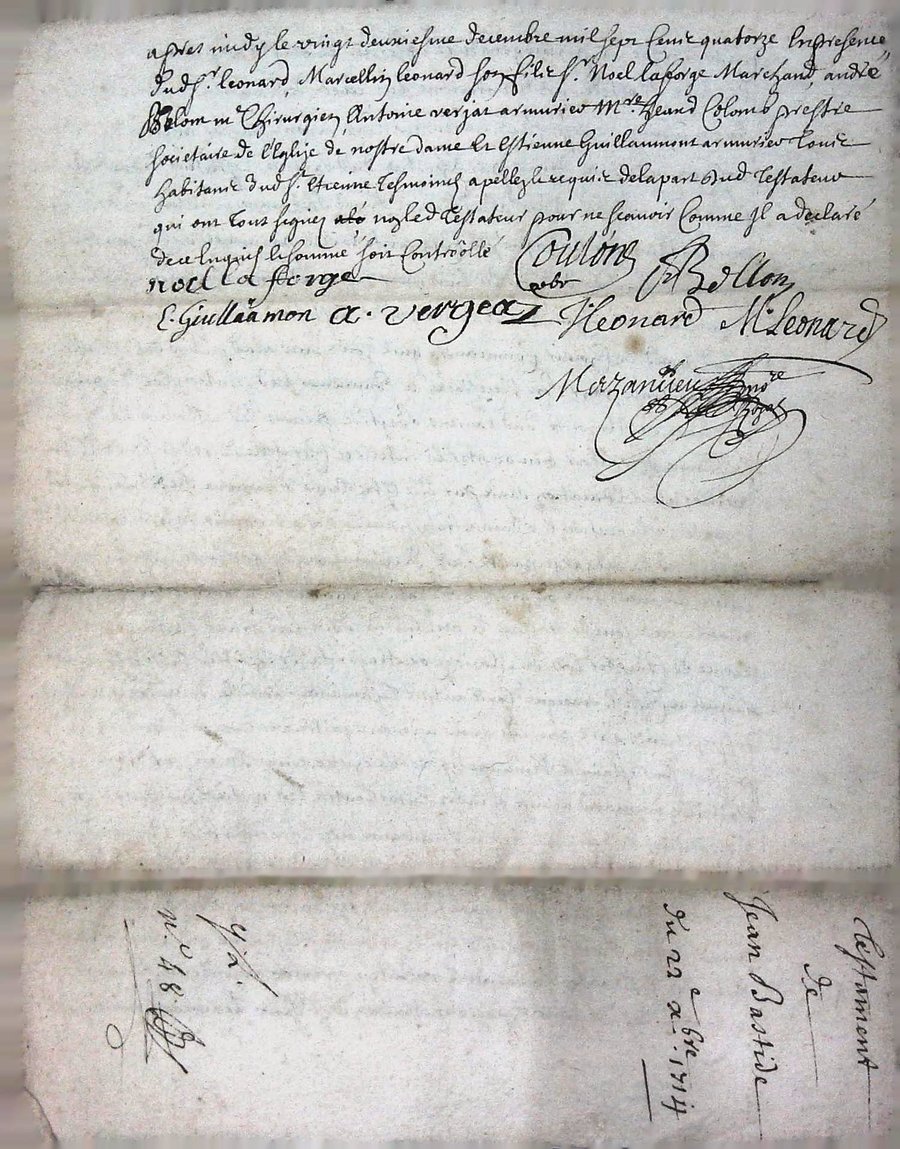 apres midy le vingt deuxiesme decembre mil sept cent quatorze En presence
dud Sr. leonard, Marcellin leonard son filz Sr. Noel laforge Marchand, andré
Belom m chirurgien, Antoine verjat armurier Mre. Colomb prestre
societaire de l'Eglise de nostre dame Et Estienne Guillaumont armurier tous
habitants dud St. Etienne Tesmoins apellez & requis de la part dud Testateur
qui ont tous signez non led Testateur pour ne scavoir Comme Il a declaré
de ce Enquis & sommé soit Controollé
noel la forge
Coulomb
pbr
Bellon
E. Guillaamon a. vergeaz Leonard M. Leonard
Mazandieu nore
Royal
Testament
de
Jean Bastide
du 22 xbre. 1714
n.o 48